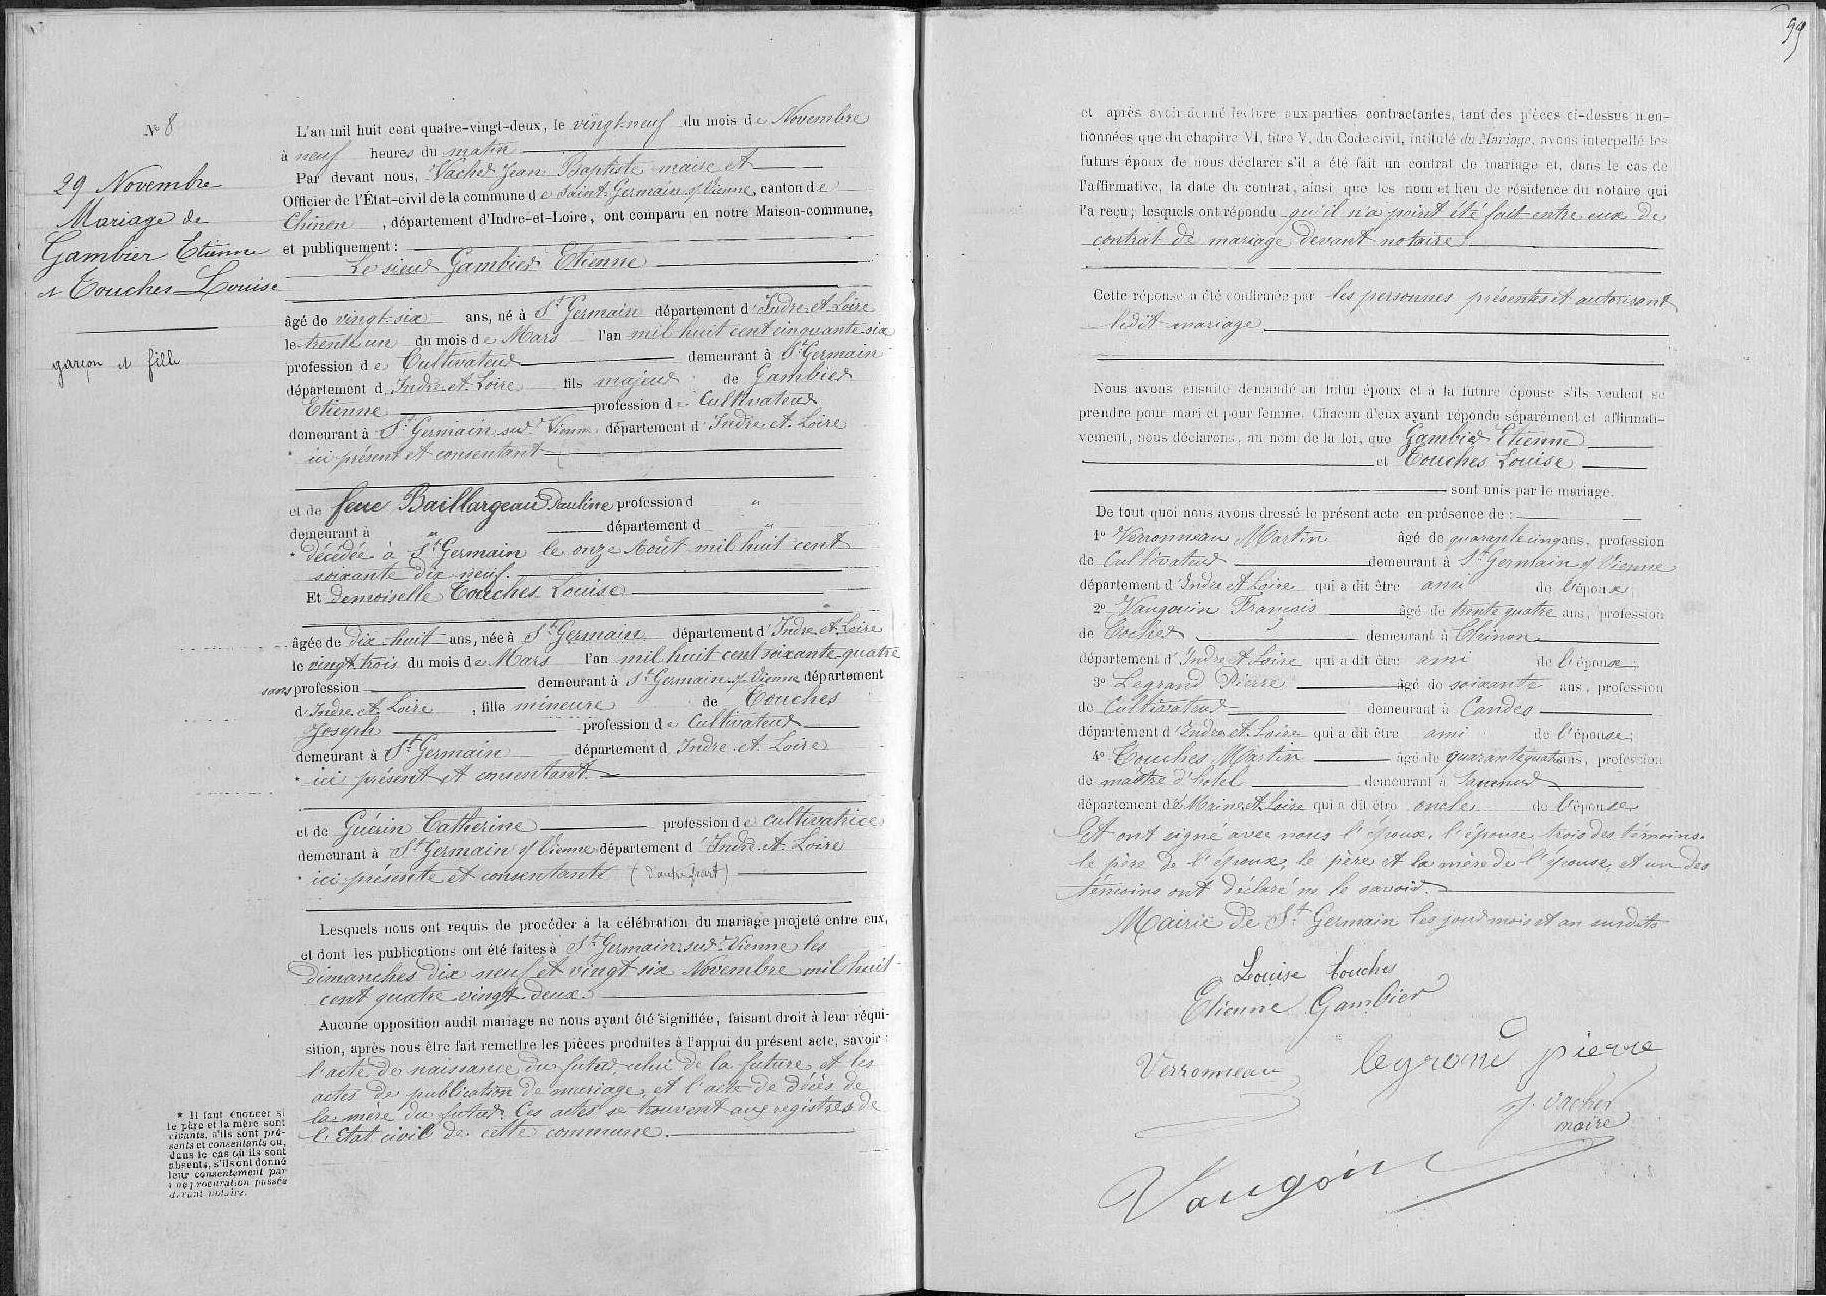 99
N° 8
29 Novembre
Mariage de
Gambier Etienne
et Touches Louise
garçon et fille
L'an mil huit cent quatre-vingt-deux, le vingt-neuf du mois de Novembre
à neuf heures du matin
Par devant nous, Vacher Jean Baptiste maire et
Officier de l'État-civil de la commune de Saint-Germain s/ Vienne, canton de
Chinon, département d'Indre-et-Loire, ont comparu en notre Maison-commune,
et publiquement :
Le sieur Gambier Etienne
âgé de vingt-six ans, né à St Germain département d'Indre-et-Loire
le trente un du mois de Mars l'an mil huit cent cinquante-six
profession de Cultivateur demeurant à St Germain
département d'Indre-et-Loire fils majeur de Gambier
Etienne profession de Cultivateur
demeurant à St Germain sur Vienne département d'Indre-et-Loire
* ici présent et consentant
et de feue Baillargeau Pauline profession d "
demeurant à " département d "
* décédée à St Germain le onze Août mil huit cent
soixante dix neuf.
Et Demoiselle Touches Louise
âgée de dix-huit ans, née à St Germain département d'Indre-et-Loire
le vingt trois du mois de Mars l'an mil huit cent soixante-quatre
sans profession demeurant à St Germain s/ Vienne département
d'Indre-et-Loire, fille mineure de Touches
Joseph profession de Cultivateur
demeurant à St Germain département d'Indre-et-Loire
* ici présent et consentant
et de Guérin Catherine profession de cultivatrice
demeurant à St Germain s/ Vienne département d'Indre-et-Loire
* ici présente et consentante (d'autre part)
Lesquels nous ont requis de procéder à la célébration du mariage projeté entre eux,
et dont les publications ont été faites à St Germain-sur-Vienne les
dimanches dix neuf et vingt six Novembre mil huit
cent quatre vingt deux.
Aucune opposition audit mariage ne nous ayant été signifiée, faisant droit à leur réqui-
sition, après nous être fait remettre les pièces produites à l'appui du présent acte, savoir :
l'acte de naissance du futur, celui de la future, et les
actes de publication de mariage, et l'acte de décès de
la mère du futur. Ces actes se trouvent aux registres de
l'Etat civil de cette commune.
* Il faut énoncer si
le père et la mère sont
vivants, s'ils sont pré-
sents et consentants ou,
dans le cas où ils sont
absents, s'ils ont donné
leur consentement par
une procuration passée
devant notaire.
et après avoir donné lecture aux parties contractantes, tant des pièces ci-dessus men-
tionnées que du chapitre VI, titre V, du Code civil, intitulé du Mariage, avons interpellé les
futurs époux de nous déclarer s'il a été fait un contrat de mariage et, dans le cas de
l'affirmative, la date du contrat, ainsi que les nom et lieu de résidence du notaire qui
l'a reçu ; lesquels ont répondu qu'il n'a point été fait entre eux de
contrat de mariage devant notaire.
Cette réponse a été confirmée par les personnes présentes et autorisant
ledit mariage
Nous avons ensuite demandé au futur époux et à la future épouse s'ils veulent se
prendre pour mari et pour femme. Chacun d'eux ayant répondu séparément et affirmati-
vement, nous déclarons, au nom de la loi, que Gambier Etienne
et Touches Louise
sont unis par le mariage.
De tout quoi nous avons dressé le présent acte en présence de :
1° Verronneau Martin âgé de quarante cinq ans, profession
de Cultivateur demeurant à St Germain s/ Vienne
département d'Indre et Loire qui a dit être ami de l'époux
2° Vaugouin François âgé de trente quatre ans, profession
de Cocher demeurant à Chinon
département d'Indre et Loire qui a dit être ami de l'époux
3° Legrand Pierre âgé de soixante ans, profession
de Cultivateur demeurant à Candes
département d'Indre-et-Loire qui a dit être ami de l'épouse
4° Touches Martin âgé de quarante quatre ans, profession
de maître d'hôtel demeurant à Saumur
département de Maine-et-Loire qui a dit être oncle de l'épouse
Et ont signé avec nous l'époux, l'épouse trois des témoins.
le père de l'époux, le père et la mère de l'épouse, et un des
témoins ont déclaré ne le savoir.
Mairie de St Germain les jour mois et an susdits
Louise touches
Etienne Gambier
Verronneau
legrand pierre
J. Vacher
maire
Vaugoin